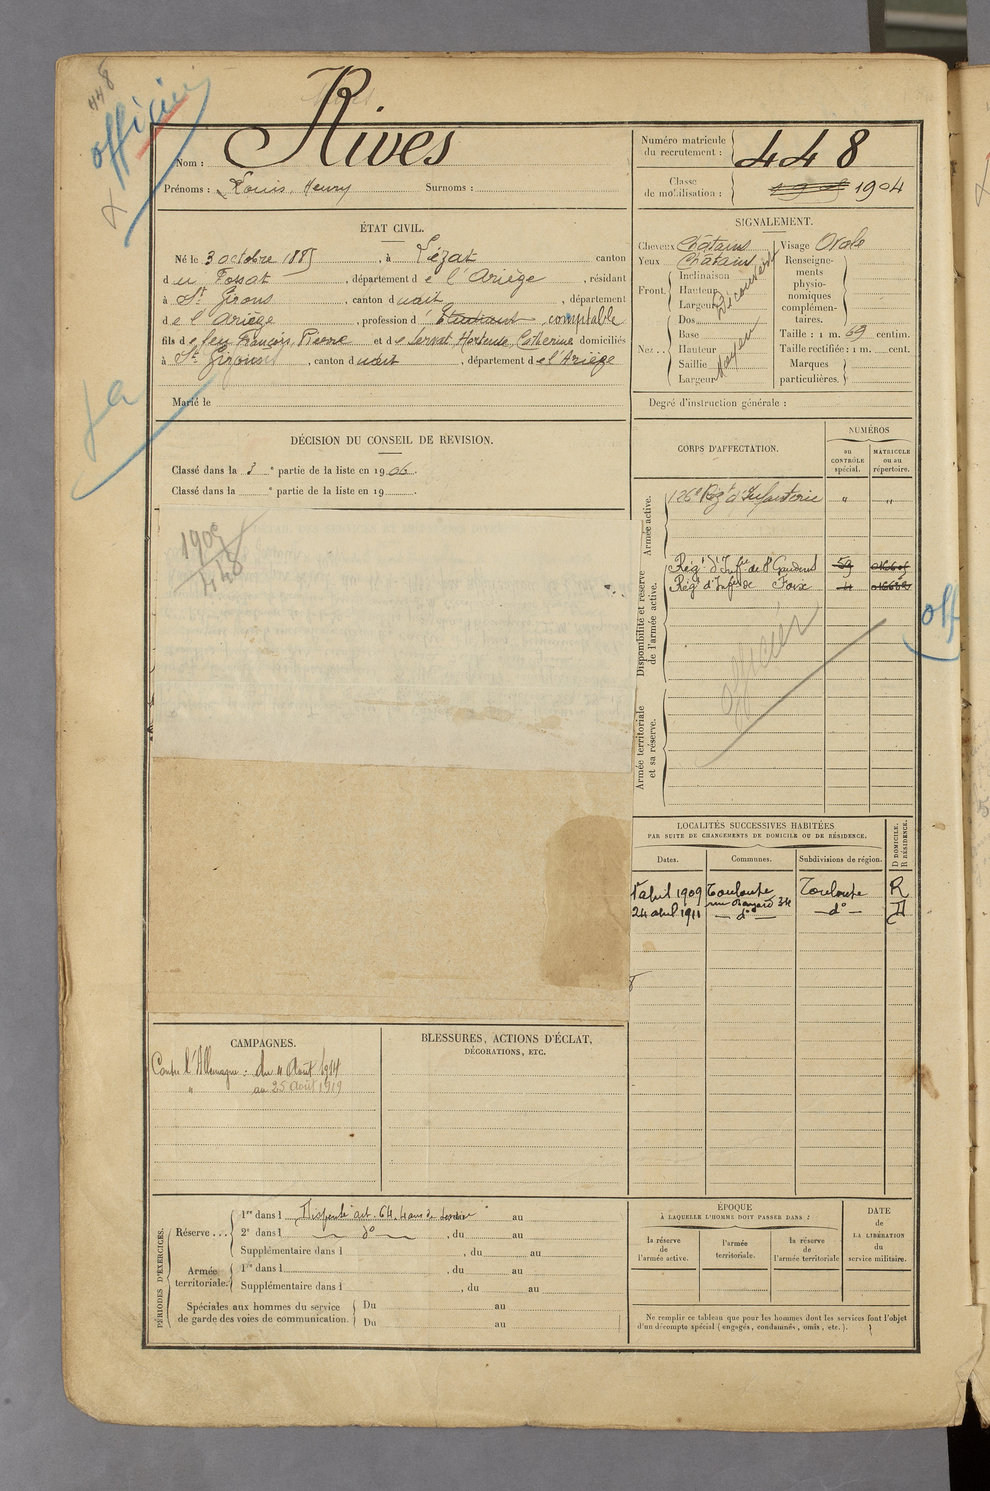 448
officier
Rives
Nom :
Prénoms : Louis, Henry Surnoms :
Numéro matricule du recrutement : 448
Classe de mobilisation : 1904
ÉTAT CIVIL.
Né le 3 octobre 1885, à Lézat canton
du Fossat, département de l'Ariège, résidant
à St Girons, canton dudit, département
de l'Ariège, profession d'Etudiant comptable
fils de feu François, Pierre et de Servat Hortense, Catherine domiciliés
à St Girons, canton dudit, département de l'Ariège
Marié le
SIGNALEMENT.
Cheveux Châtains
Yeux Châtains
Front. Inclinaison
Hauteur
Largeur
Découvert
Nez . . Dos
Base
Hauteur
Saillie
Largeur
Moyen
Visage Ovale
Renseignements physionomiques complémentaires.
Taille : 1 m. 69 centim.
Taille rectifiée : 1 m. cent.
Marques particulières.
Degré d'instruction générale :
DÉCISION DU CONSEIL DE REVISION.
Classé dans la 3e partie de la liste en 1906.
Classé dans la e partie de la liste en 19
1905
448
CORPS D'AFFECTATION.
NUMÉROS
au CONTRÔLE spécial.
MATRICULE ou au répertoire.
Armée active.
126e Régt d'Infanterie " "
Disponibilité et réserve de l'armée active.
Régt d'Infie de St Gaudens 59
Régt d'Infie de Foix
officier
off
Armée territoriale et sa réserve.
LOCALITÉS SUCCESSIVES HABITÉES
PAR SUITE DE CHANGEMENTS DE DOMICILE OU DE RÉSIDENCE.
D DOMICILE. R RÉSIDENCE.
Dates. Communes. Subdivisions de région.
1er abril 1909 Toulouse Toulouse R
24 abril 1911 — do — — do — D
CAMPAGNES.
Contre l'Allemagne : du 4 Août 1914
" au 25 Août 1919
BLESSURES, ACTIONS D'ÉCLAT,
DÉCORATIONS, ETC.
PÉRIODES D'EXERCICES.
Réserve . . . 1re dans l Dispensé art. 64 au
2e dans l do , du au
Supplémentaire dans l , du au
Armée territoriale. 1re dans l , du au
Supplémentaire dans l , du au
Spéciales aux hommes du service de garde des voies de communication. Du au
Du au
ÉPOQUE
À LAQUELLE L'HOMME DOIT PASSER DANS :
la réserve de l'armée active.
l'armée territoriale.
la réserve de l'armée territoriale
DATE de LA LIBÉRATION du service militaire.
Ne remplir ce tableau que pour les hommes dont les services font l'objet
d'un décompte spécial (engagés, condamnés, omis, etc.).